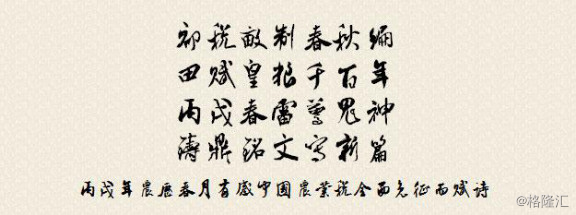 初税畝制春秋编
田赋皇粮千百年
丙戌春雷惊鬼神
铸鼎铭文写新篇
丙戌年农历春月有感中国农业税全面免征而赋诗
@格隆汇